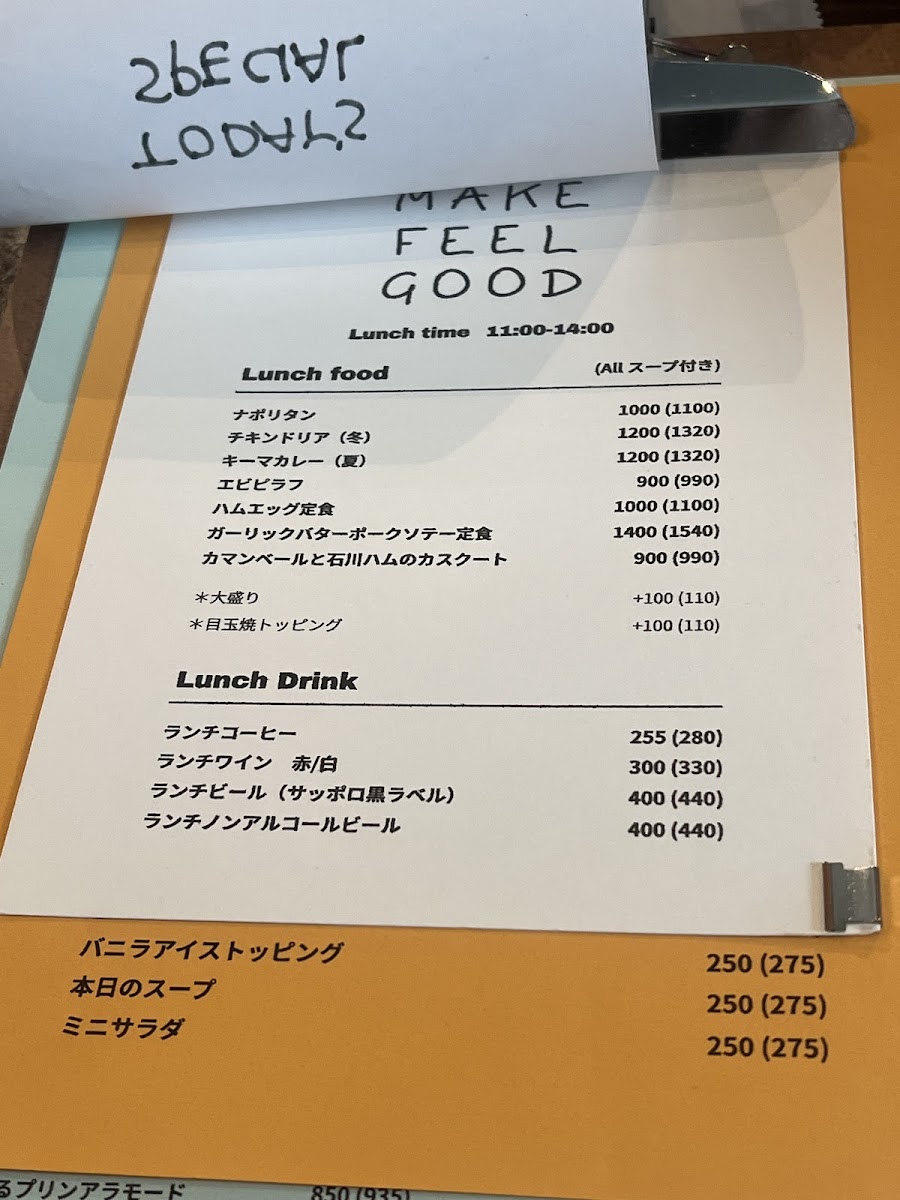 TODAY'S
SPECIAL
MAKE
FEEL
GOOD
Lunch time 11:00-14:00
Lunch food (All スープ付き)
ナポリタン 1000 (1100)
チキンドリア（冬） 1200 (1320)
キーマカレー（夏） 1200 (1320)
エビピラフ 900 (990)
ハムエッグ定食 1000 (1100)
ガーリックバターポークソテー定食 1400 (1540)
カマンベールと石川ハムのカスクート 900 (990)
＊大盛り +100 (110)
＊目玉焼トッピング +100 (110)
Lunch Drink
ランチコーヒー 255 (280)
ランチワイン　赤/白 300 (330)
ランチビール（サッポロ黒ラベル） 400 (440)
ランチノンアルコールビール 400 (440)
バニラアイストッピング 250 (275)
本日のスープ 250 (275)
ミニサラダ 250 (275)
るプリンアラモード 850 (935)